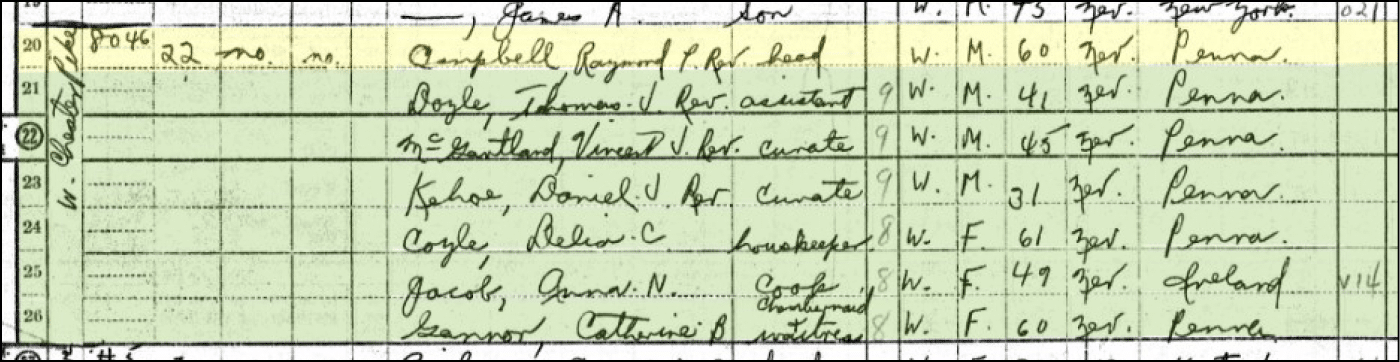 19 ——, James A. son W. M. Nev. New York. 021
W. Chester Pike
20 8046 22 no. no. Campbell Raymond P. Rev. head W. M. 60 Nev. Penna.
21 Doyle, Thomas J. Rev. assistant 9 W. M. 41 Nev. Penna.
22 McGartland, Vincent J. Rev. curate 9 W. M. 45 Nev. Penna.
23 Kehoe, Daniel J. Rev. curate 9 W. M. 31 Nev. Penna.
24 Coyle, Delia C. housekeeper 8 W. F. 61 Nev. Penna.
25 Jacob, Anna N. Cook 8 W. F. 49 Nev. Ireland V14
26 Gannon, Catherine B Chambermaid + waitress 8 W. F. 60 Nev. Penna